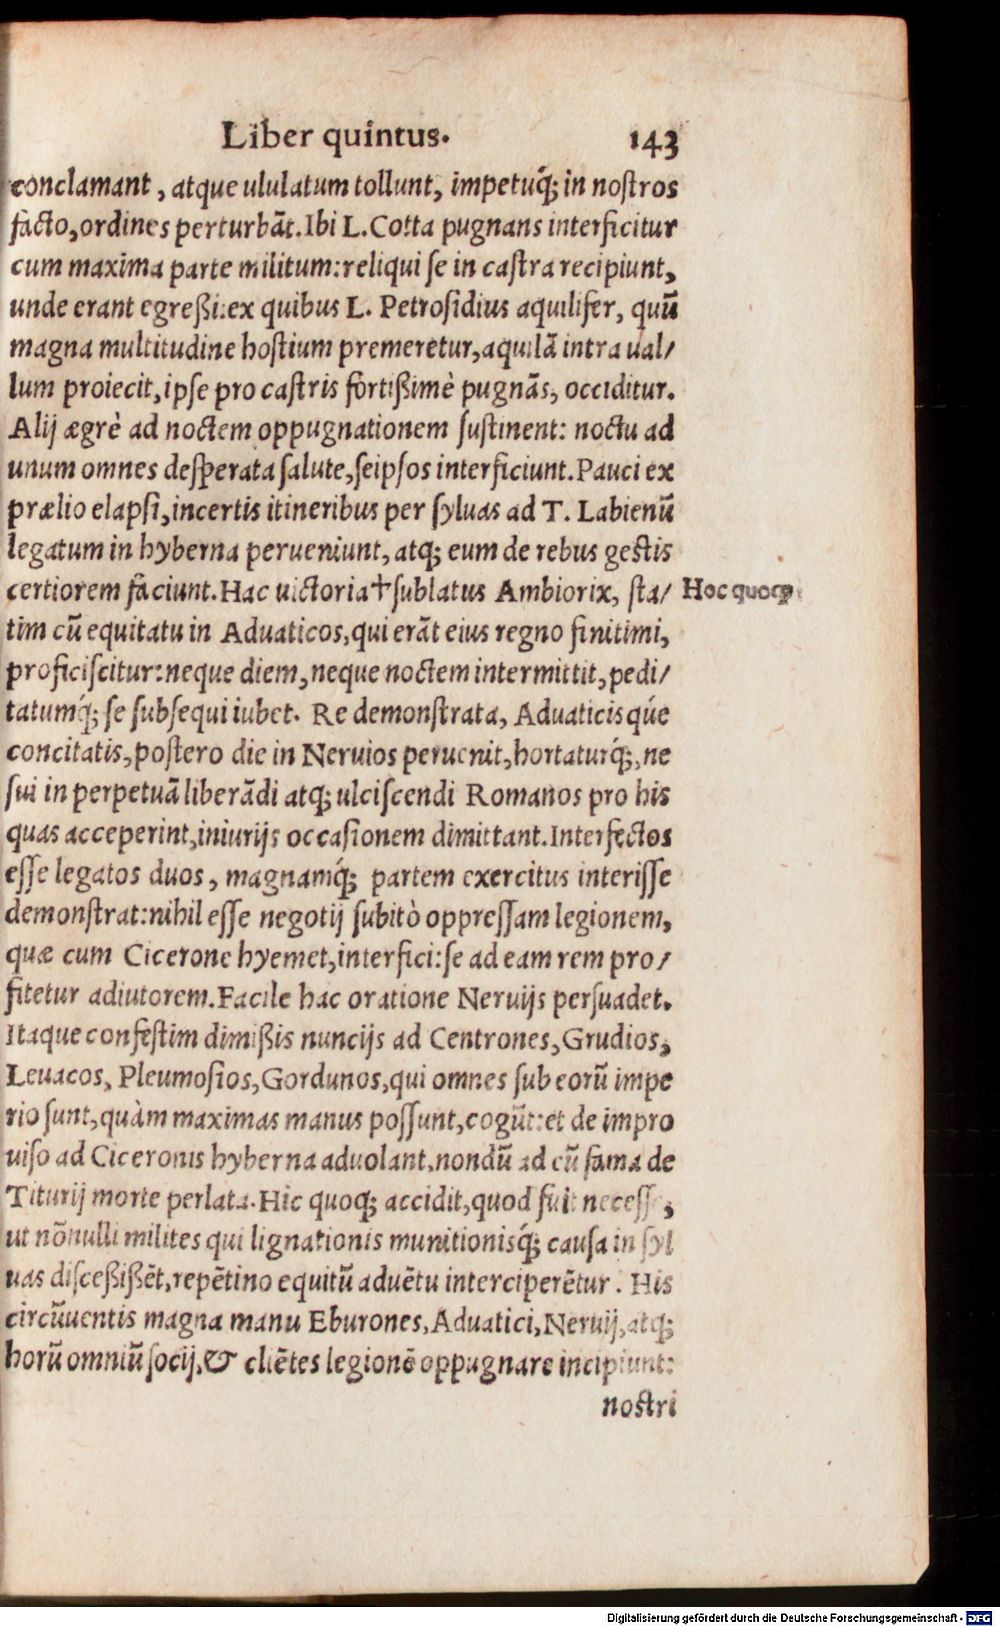 Liber quintus. 143
conclamant, atque ululatum tollunt, impetuq́; in nostros
facto, ordines perturbāt. Ibi L. Cotta pugnans interficitur
cum maxima parte militum: reliqui se in castra recipiunt,
unde erant egreßi: ex quibus L. Petrosidius aquilifer, quū
magna multitudine hostium premeretur, aquilā intra ual/
lum proiecit, ipse pro castris fortißimè pugnās, occiditur.
Alij ægrè ad noctem oppugnationem sustinent: noctu ad
unum omnes desperata salute, seipsos interficiunt. Pauci ex
prælio elapsi, incertis itineribus per syluas ad T. Labienū
legatum in hyberna perueniunt, atq; eum de rebus gestis
certiorem faciunt. Hac uictoria † sublatus Ambiorix, sta/ Hoc quoqp
tim cū equitatu in Aduaticos, qui erāt eius regno finitimi,
proficiscitur: neque diem, neque noctem intermittit, pedi/
tatumq́; se subsequi iubet. Re demonstrata, Aduaticisqúe
concitatis, postero die in Neruios peruenit, hortaturq́;, ne
sui in perpetuā liberādi atq; ulciscendi Romanos pro his
quas acceperint, iniurijs occasionem dimittant. Interfectos
esse legatos duos, magnamq́; partem exercitus interisse
demonstrat: nihil esse negotij subitò oppressam legionem,
quæ cum Cicerone hyemet, interfici: se ad eam rem pro/
fitetur adiutorem. Facile hac oratione Neruijs persuadet.
Itaque confestim dimißis nuncijs ad Centrones, Grudios,
Leuacos, Pleumosios, Gordunos, qui omnes sub eorū impe
rio sunt, quàm maximas manus possunt, cogūt: et de impro
uiso ad Ciceronis hyberna aduolant, nondū ad cū fama de
Titurij morte perlata. Hic quoq; accidit, quod fuit necesse,
ut nōnulli milites qui lignationis munitionisq́; causa in syl
uas disceßißēt, repētino equitū aduētu interciperētur. His
circūuentis magna manu Eburones, Aduatici, Neruij, atq;
horū omniū socij, & cliētes legionē oppugnare incipiunt:
nostri
Digitalisierung gefördert durch die Deutsche Forschungsgemeinschaft - DFG